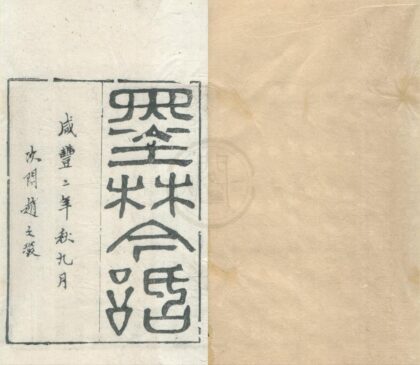 墨林今話
咸豐二年秋九月
次閒趙之琛